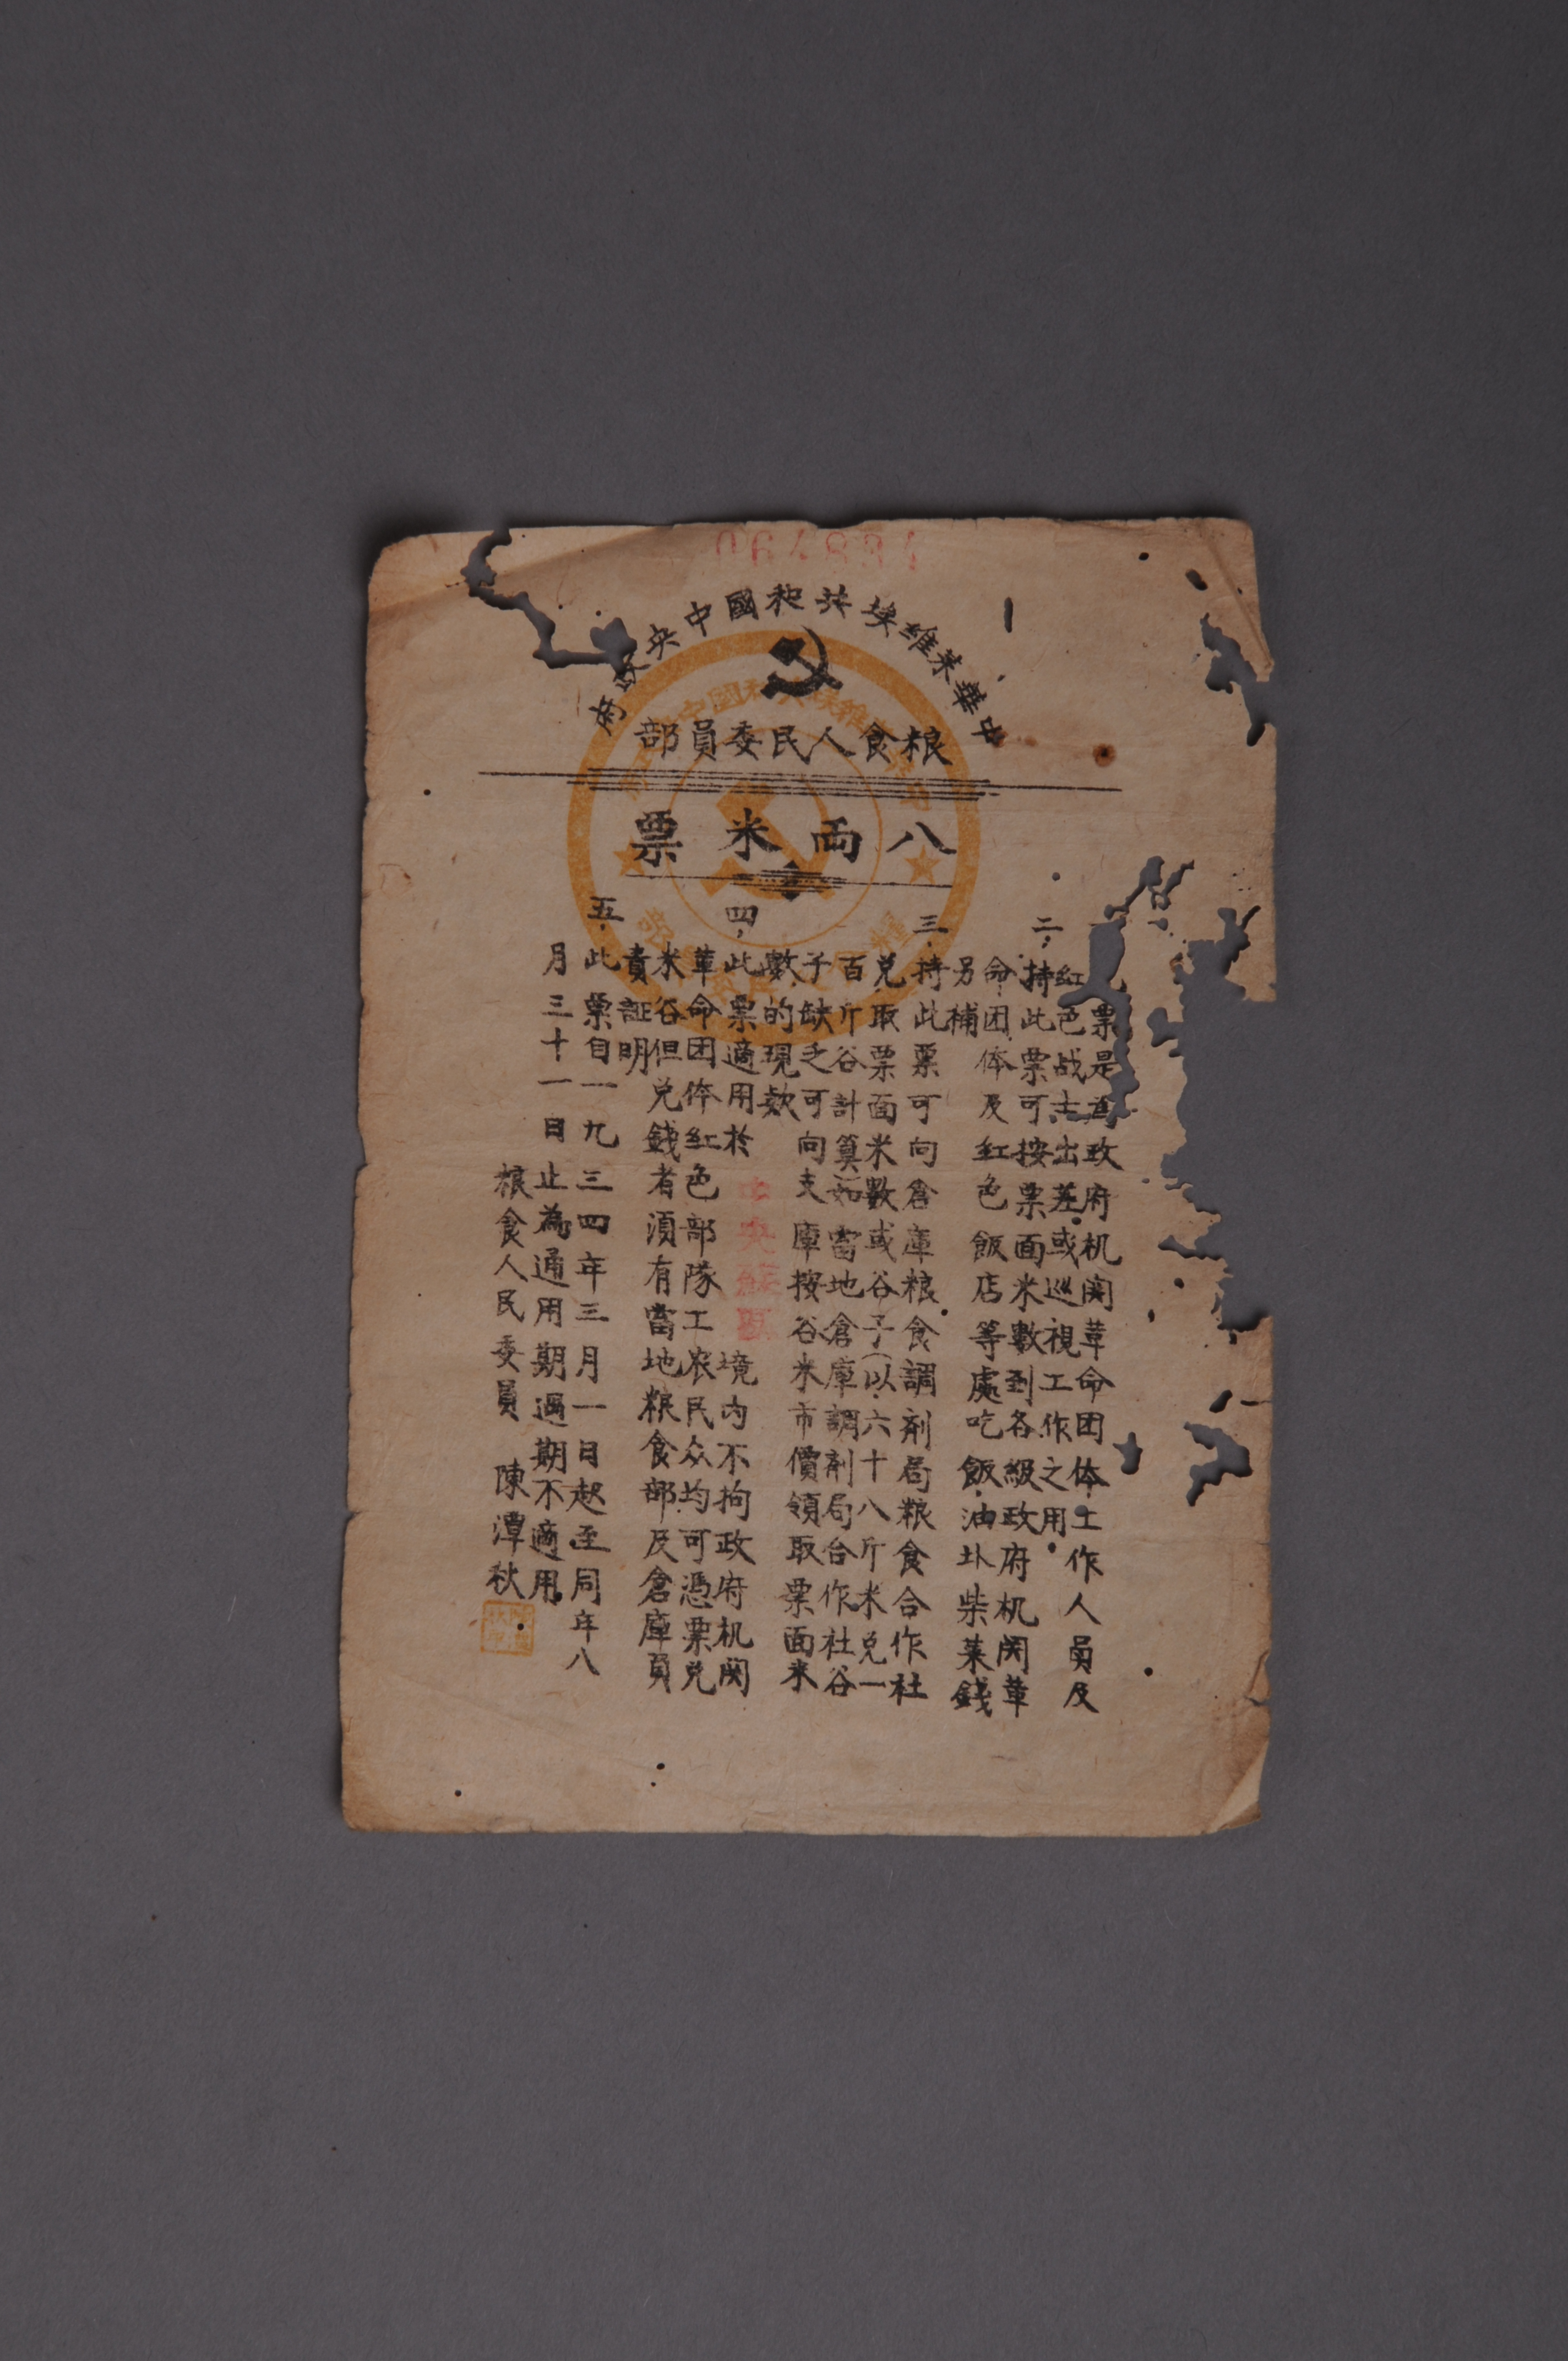 中華蘇維埃共和國中央政府
粮食人民委員部
八両米票
票是為政府机関革命团体工作人員及
紅色战士出差或巡視工作之用
二,持此票可按票面米數到各級政府机関革
命团体及紅色飯店等處吃飯油圤柴菜錢
另補
三.持此票可向倉庫粮食調剂局粮食合作社
兑取票面米數或谷子(以六十八斤米兑一
百斤谷計算)如當地倉庫調剂局合作社谷
子缺乏可向支庫按谷米市價領取票面米
數的現款
四,此票適用於中央蘇區境内不拘政府机関
革命团体紅色部隊工农民众均可憑票兑
米谷但兑錢者須有當地粮食部及倉庫負
責証明
五.此票自一九三四年三月一日起至同年八
月三十一日止為通用期過期不適用
粮食人民委員 陳潭秋